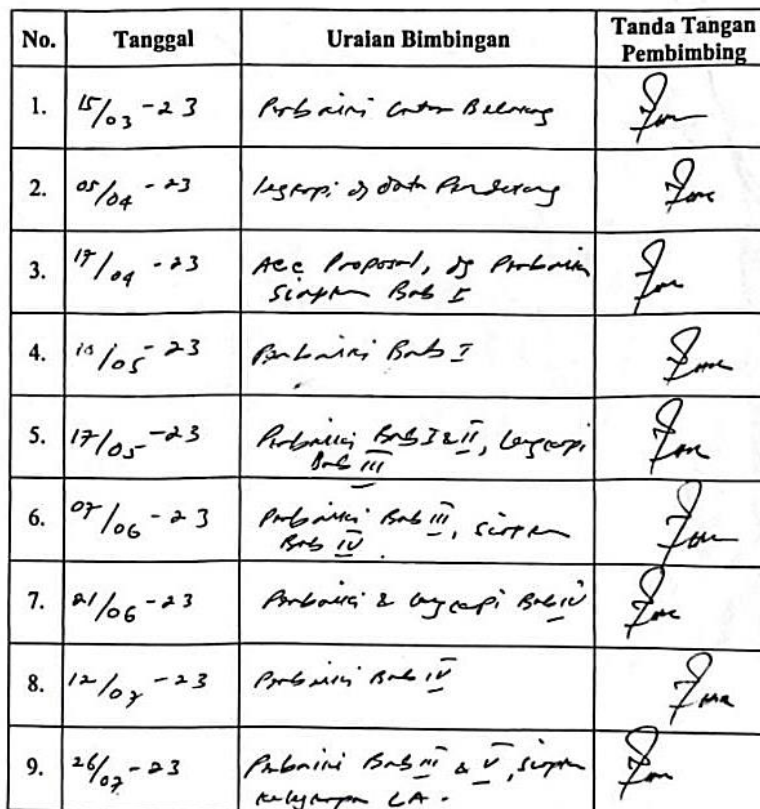 No. Tanggal Uraian Bimbingan Tanda Tangan
Pembimbing
1. 15/03 - 23 Perbaiki Latar Belakang
2. 05/04 - 23 lengkapi dg data Pendukung
3. 17/04 - 23 Acc Proposal, dg Perbaikan
Siapkan Bab I
4. /05 - 23 Perbaiki Bab I
5. 17/05 - 23 Perbaiki Bab I & II, lengkapi
Bab III
6. 07/06 - 23 Perbaiki Bab III, siapkan
Bab IV
7. 21/06 - 23 Perbaiki & lengkapi Bab IV
8. 12/07 - 23 Perbaiki Bab IV
9. 26/07 - 23 Perbaiki Bab III & V, siapkan
kelengkapan LA.